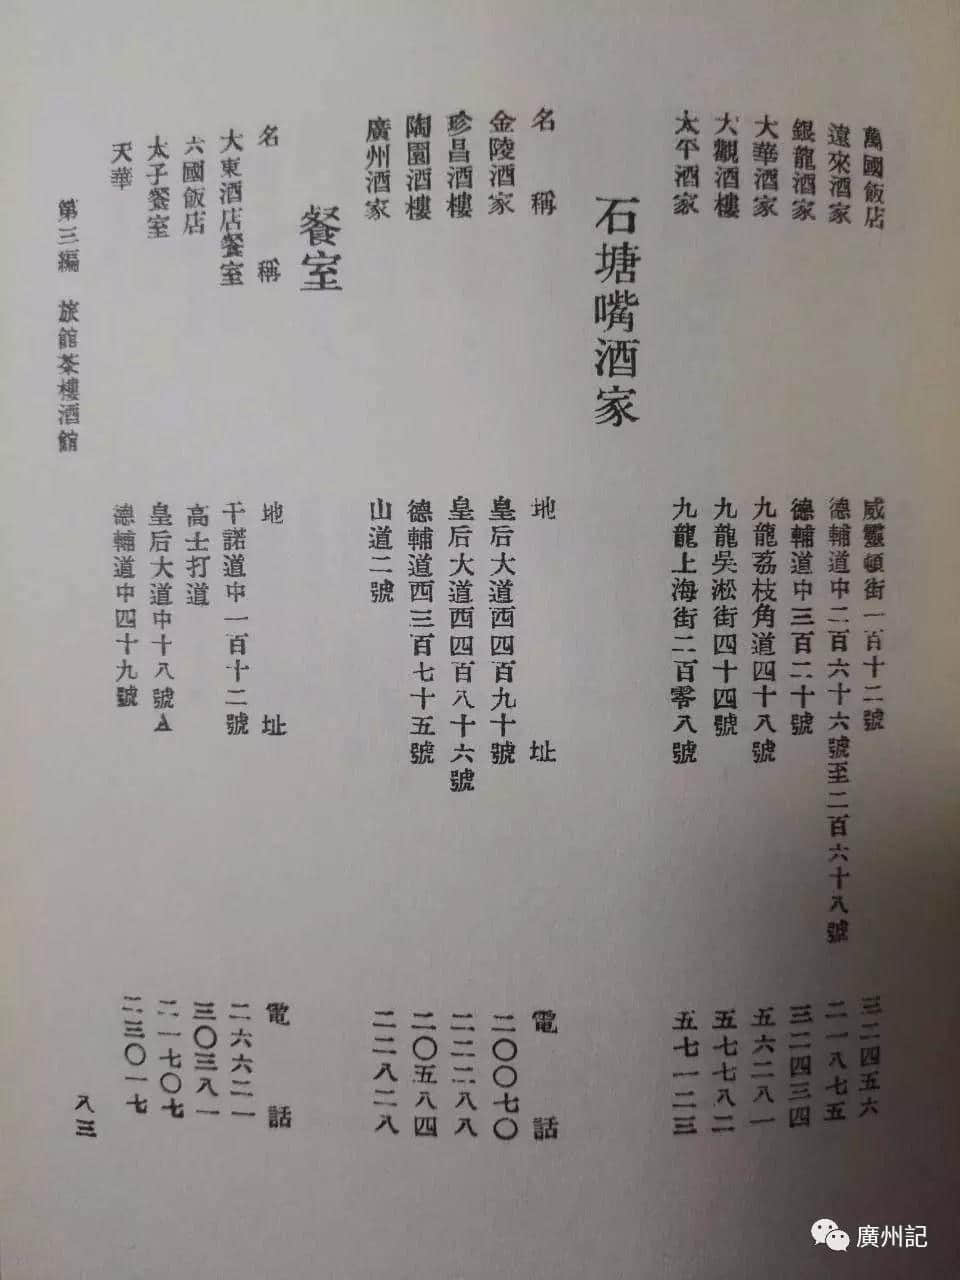 萬國飯店 威靈頓街一百十二號 三二四五六
遠來酒家 德輔道中二百六十六號至二百六十八號 二一八七五
銀龍酒家 德輔道中三百二十號 三二四三四
大華酒家 九龍荔枝角道四十八號 五六二八一
大觀酒樓 九龍吳淞街四十四號 五七七八二
太平酒家 九龍上海街二百零八號 五七一二三
石塘嘴酒家
名稱 地址 電話
金陵酒家 皇后大道西四百九十號 二〇〇七〇
珍昌酒樓 皇后大道西四百八十六號 二二二八八
陶園酒樓 德輔道西三百七十五號 二〇五八四
廣州酒家 山道二號 二二八二八
餐室
名稱 地址 電話
大東酒店餐室 干諾道中一百十二號 二六六二一
六國飯店 高士打道 三〇三八一
太子餐室 皇后大道中十八號A 二一七〇七
天華 德輔道中四十九號 二三〇一七
第三編 旅館茶樓酒館
八三
廣州記